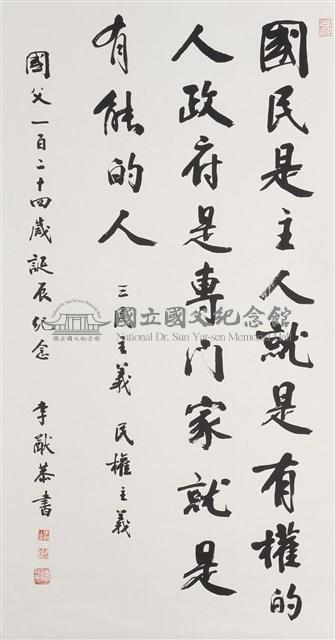 國民是主人就是有權的
人政府是專門家就是
有能的人
三民主義 民權主義
國父一百二十四歲誕辰紀念 李猷恭書
國立國父紀念館
National Dr. Sun Yat-sen Memorial Hall